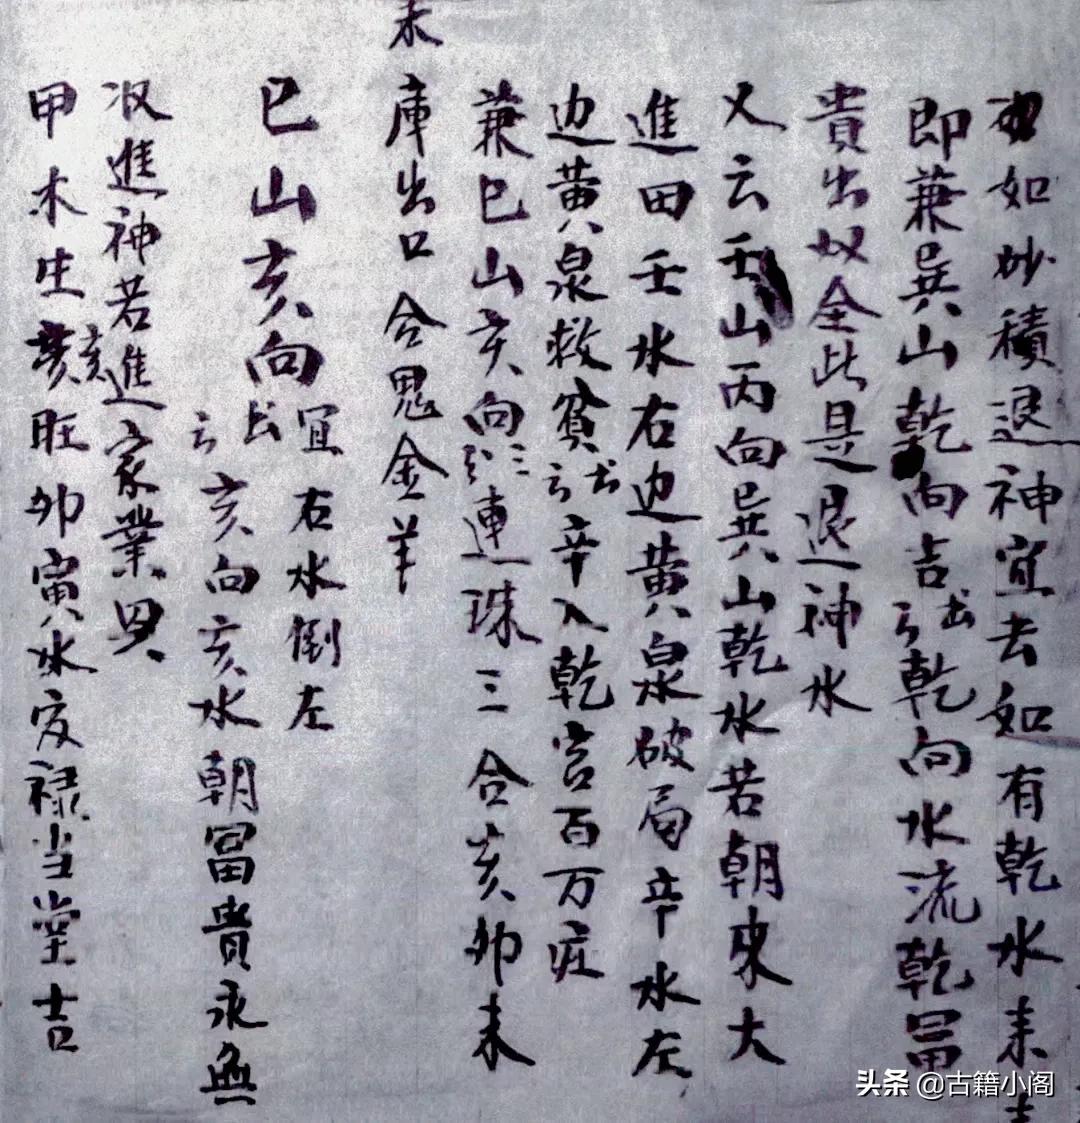 如妙積退神宜去如有乾水来
即兼巽山乾向吉书云乾向水流乾冨
貴出奴全此是退神水
又云壬山丙向巽山乾水若朝来大
進田壬水右边黄泉破局辛水左
边黄泉救貧书云辛入乾宫百万庄
兼巳山亥向連珠三合亥卯未
未庫出口合鬼金羊
巳山亥向宜右水倒左
书云亥向亥水朝冨貴永無
進神若進家業
甲木生亥旺卯寅水祿当堂吉
头条 @古籍小阁